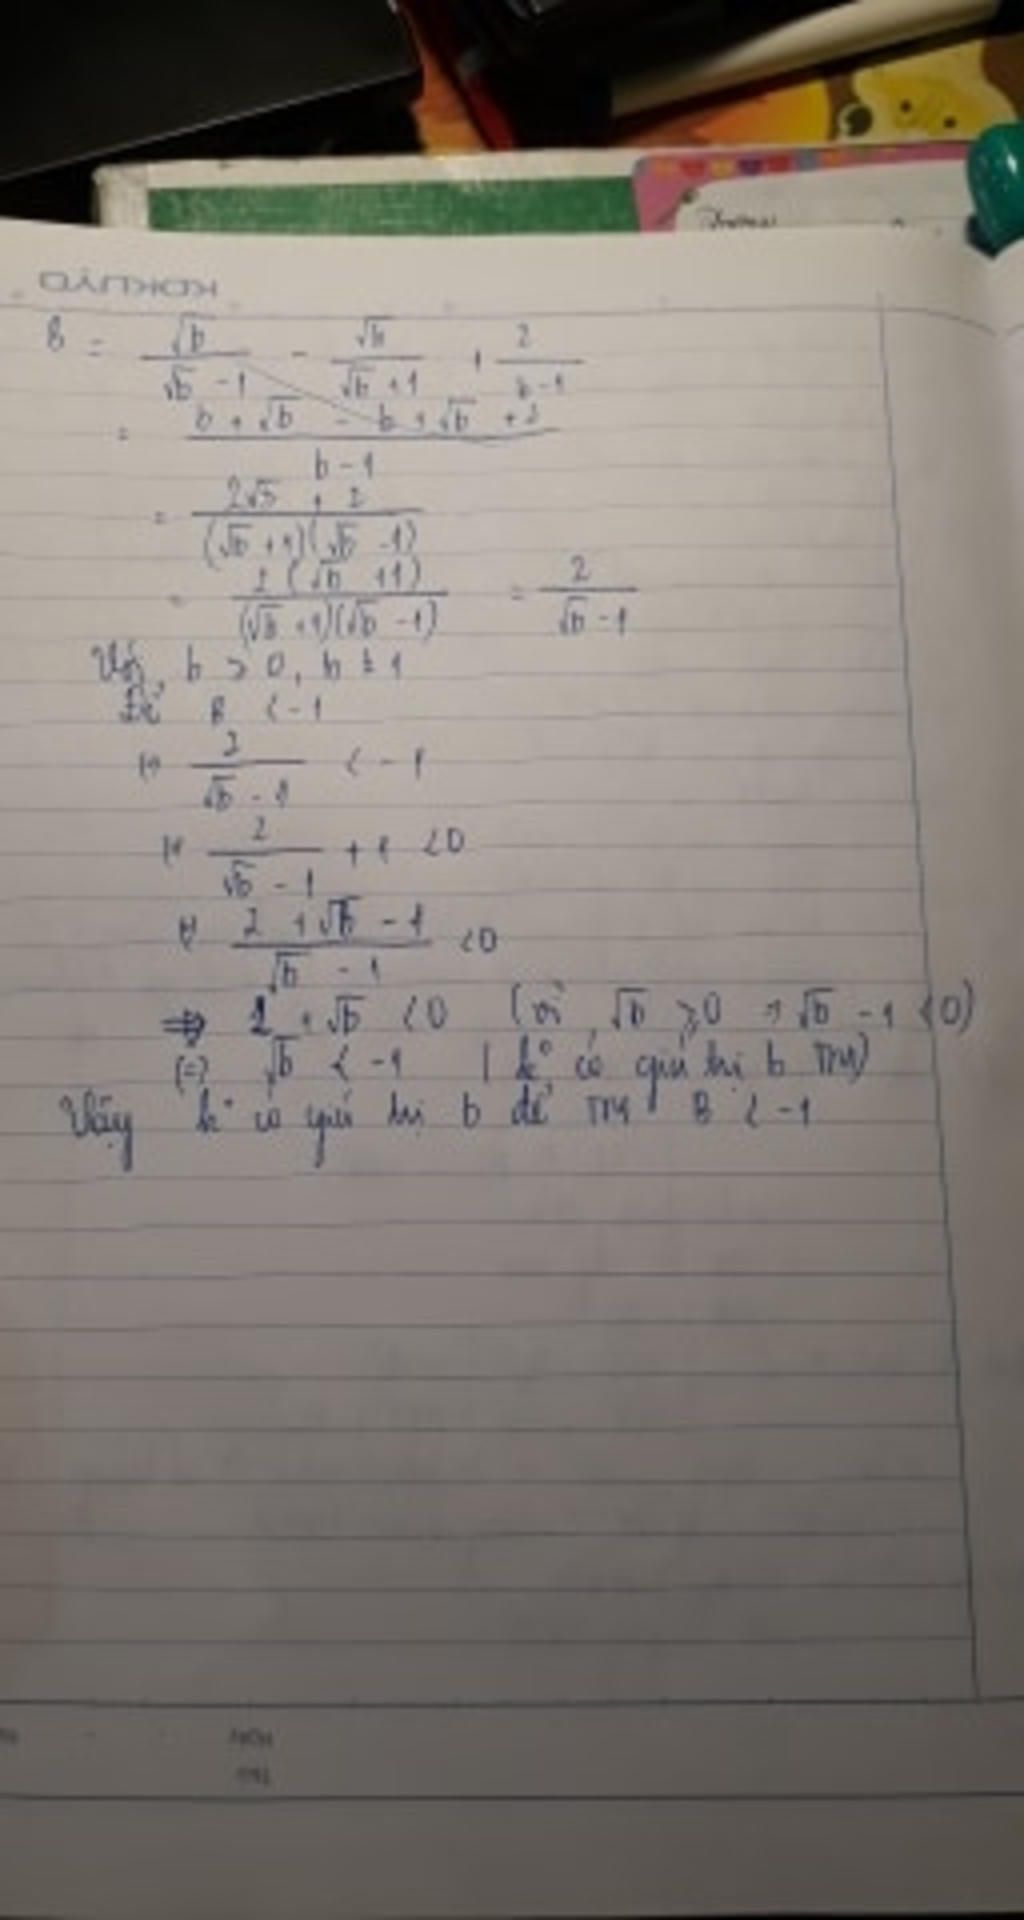 KOKUYO
B = √b/(√b - 1) - √b/(√b + 1) + 2/(b - 1)
= (b + √b - b + √b + 2)/(b - 1)
= (2√b + 2)/((√b + 1)(√b - 1))
= 2(√b + 1)/((√b + 1)(√b - 1)) = 2/(√b - 1)
Với b > 0, b ≠ 1
Để B < -1
(=) 2/(√b - 1) < -1
(=) 2/(√b - 1) + 1 < 0
(=) (2 + √b - 1)/(√b - 1) < 0
=> 1 + √b < 0 (vì √b ≥ 0 => √b - 1 < 0)
(=) √b < -1 (k° có giá trị b TM)
Vậy k° có giá trị b để TM B < -1